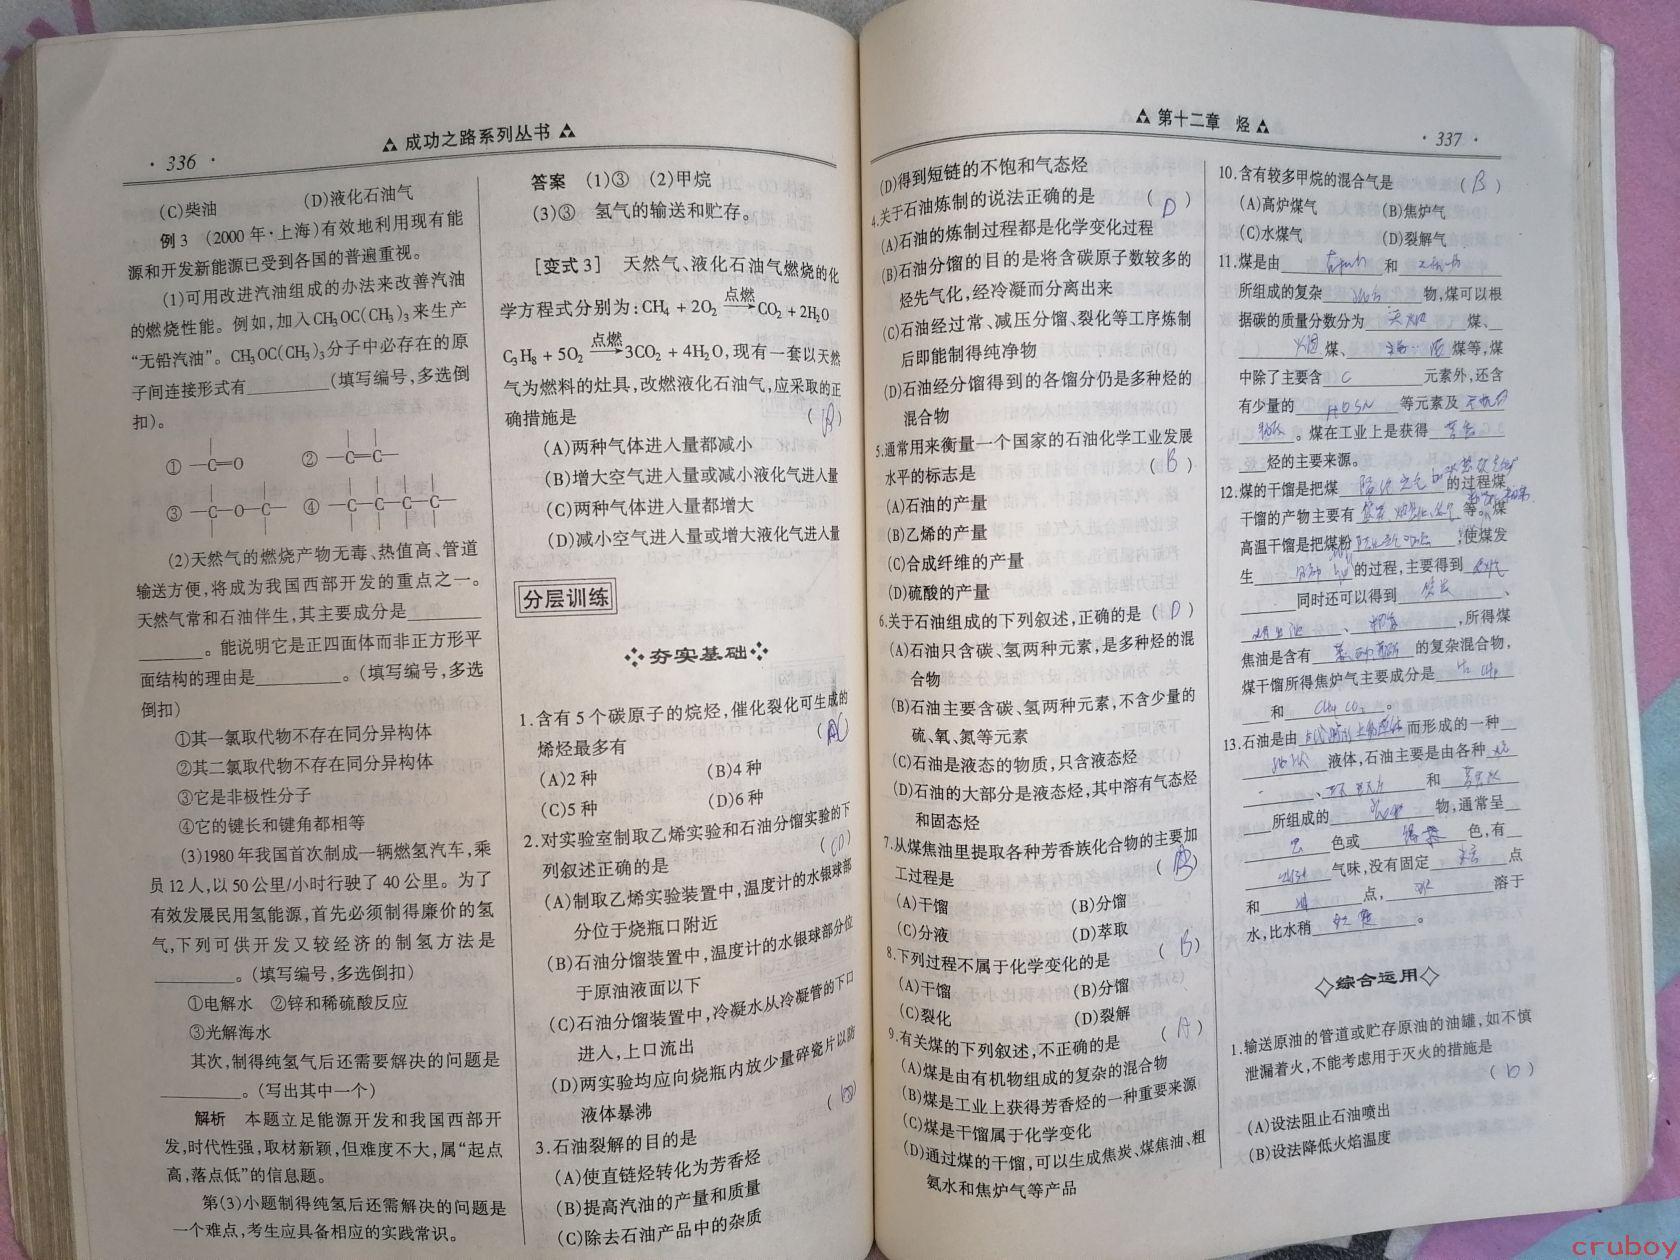 · 336 ·
成功之路系列丛书
(C)柴油 (D)液化石油气
例 3 (2000 年·上海)有效地利用现有能
源和开发新能源已受到各国的普遍重视。
(1)可用改进汽油组成的办法来改善汽油
的燃烧性能。例如,加入CH₃OC(CH₃)₃来生产
“无铅汽油”。CH₃OC(CH₃)₃分子中必存在的原
子间连接形式有________(填写编号,多选倒
扣)。
① —C=O ② —C=C—
③ —C—O—C— ④ —C—C—C—C—
(2)天然气的燃烧产物无毒、热值高、管道
输送方便,将成为我国西部开发的重点之一。
天然气常和石油伴生,其主要成分是________
________。能说明它是正四面体而非正方形平
面结构的理由是________。(填写编号,多选
倒扣)
①其一氯取代物不存在同分异构体
②其二氯取代物不存在同分异构体
③它是非极性分子
④它的键长和键角都相等
(3)1980年我国首次制成一辆燃氢汽车,乘
员12人,以50公里/小时行驶了40公里。为了
有效发展民用氢能源,首先必须制得廉价的氢
气,下列可供开发又较经济的制氢方法是
________。(填写编号,多选倒扣)
①电解水 ②锌和稀硫酸反应
③光解海水
其次,制得纯氢气后还需要解决的问题是
________。(写出其中一个)
解析 本题立足能源开发和我国西部开
发,时代性强,取材新颖,但难度不大,属“起点
高,落点低”的信息题。
第(3)小题制得纯氢后还需解决的问题是
一个难点,考生应具备相应的实践常识。
答案 (1)③ (2)甲烷
(3)③ 氢气的输送和贮存。
[变式3] 天然气、液化石油气燃烧的化
学方程式分别为:CH₄ + 2O₂ 点燃→ CO₂ + 2H₂O
C₃H₈ + 5O₂ 点燃→ 3CO₂ + 4H₂O,现有一套以天然
气为燃料的灶具,改燃液化石油气,应采取的正
确措施是 ( )
(A)两种气体进入量都减小
(B)增大空气进入量或减小液化气进入量
(C)两种气体进入量都增大
(D)减小空气进入量或增大液化气进入量
分层训练
夯实基础
1.含有5个碳原子的烷烃,催化裂化可生成的
烯烃最多有 ( )
(A)2种 (B)4种
(C)5种 (D)6种
2.对实验室制取乙烯实验和石油分馏实验的下
列叙述正确的是 (CD)
(A)制取乙烯实验装置中,温度计的水银球部
分位于烧瓶口附近
(B)石油分馏装置中,温度计的水银球部分位
于原油液面以下
(C)石油分馏装置中,冷凝水从冷凝管的下口
进入,上口流出
(D)两实验均应向烧瓶内放少量碎瓷片以防
液体暴沸
3.石油裂解的目的是 ( )
(A)使直链烃转化为芳香烃
(B)提高汽油的产量和质量
(C)除去石油产品中的杂质
第十二章 烃
· 337 ·
(D)得到短链的不饱和气态烃
4.关于石油炼制的说法正确的是 (D)
(A)石油的炼制过程都是化学变化过程
(B)石油分馏的目的是将含碳原子数较多的
烃先气化,经冷凝而分离出来
(C)石油经过常、减压分馏、裂化等工序炼制
后即能制得纯净物
(D)石油经分馏得到的各馏分仍是多种烃的
混合物
5.通常用来衡量一个国家的石油化学工业发展
水平的标志是 (B)
(A)石油的产量
(B)乙烯的产量
(C)合成纤维的产量
(D)硫酸的产量
6.关于石油组成的下列叙述,正确的是 (D)
(A)石油只含碳、氢两种元素,是多种烃的混
合物
(B)石油主要含碳、氢两种元素,不含少量的
硫、氧、氮等元素
(C)石油是液态的物质,只含液态烃
(D)石油的大部分是液态烃,其中溶有气态烃
和固态烃
7.从煤焦油里提取各种芳香族化合物的主要加
工过程是 (B)
(A)干馏 (B)分馏
(C)分液 (D)萃取
8.下列过程不属于化学变化的是 (B)
(A)干馏 (B)分馏
(C)裂化 (D)裂解
9.有关煤的下列叙述,不正确的是 (A)
(A)煤是由有机物组成的复杂的混合物
(B)煤是工业上获得芳香烃的一种重要来源
(C)煤是干馏属于化学变化
(D)通过煤的干馏,可以生成焦炭、煤焦油、粗
氨水和焦炉气等产品
10.含有较多甲烷的混合气是 (B)
(A)高炉煤气 (B)焦炉气
(C)水煤气 (D)裂解气
11.煤是由________和________
所组成的复杂________物,煤可以根
据碳的质量分数分为________煤、
________煤、________煤等,煤
中除了主要含 C 元素外,还含
有少量的 HOSN 等元素及________
________。煤在工业上是获得________
________烃的主要来源。
12.煤的干馏是把煤________的过程煤
干馏的产物主要有________等。煤
高温干馏是把煤粉________,使煤发
生________的过程,主要得到________
________同时还可以得到________、
________、________,所得煤
焦油是含有________的复杂混合物,
煤干馏所得焦炉气主要成分是________
________和________。
13.石油是由________而形成的一种
________液体,石油主要是由各种________
________、________和________
所组成的________物,通常呈
________色或________色,有
________气味,没有固定________点
和________点,________溶于
水,比水稍________。
综合运用
1.输送原油的管道或贮存原油的油罐,如不慎
泄漏着火,不能考虑用于灭火的措施是
(D)
(A)设法阻止石油喷出
(B)设法降低火焰温度
cruboy